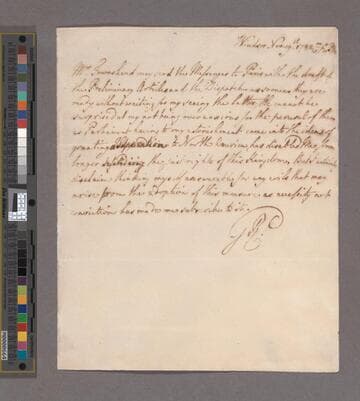 Windsor Nov. 19th 1782.
Mr. Townshend may send the Messenger to Paris with the draft of
the Preliminary Articles and the Dispatches as soon as they are
ready without waiting for my seeing them He must not be
surprised at my not being over anxious for the perusal of them
as Parliament having to my astonishment come into the ideas of
granting a Separation to North America, has disabled Me from
longer defending the just rights of this Kingdom. But I certainly
disclaim thinking myself answerable for any evils that may
arise from the adoption of this measure as necessity not
conviction has made me subscribe to it.
GR.